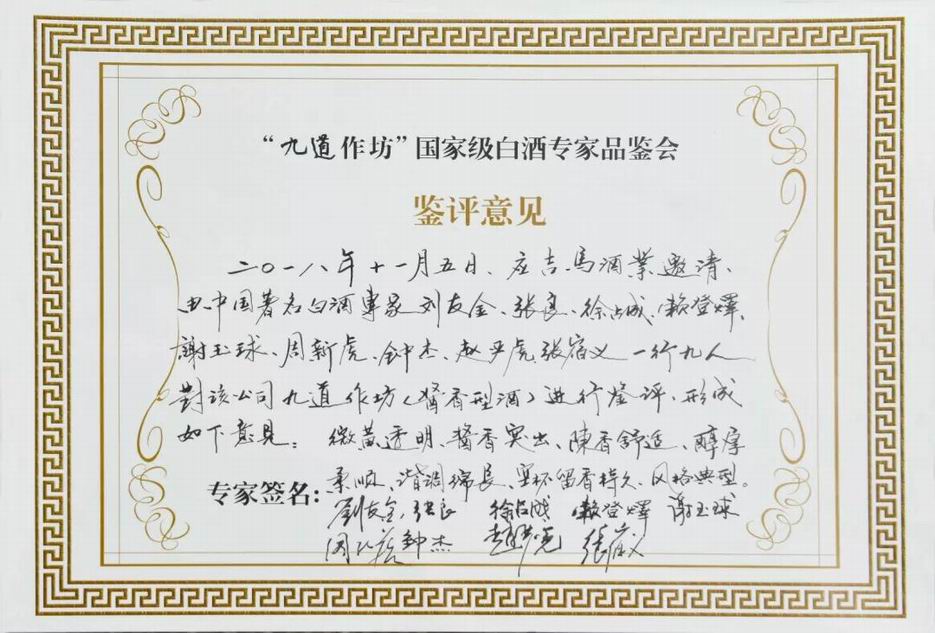 “九道作坊”国家级白酒专家品鉴会
鉴评意见
二〇一八年十一月五日、应吉马酒業邀请、
由中国著名白酒專家刘友金、张良、徐占成、赖登燡、
謝玉球、周新虎、钟杰、赵严虎、张宿义一行九人
對该公司九道作坊（醬香型酒）进行鉴评、形成
如下意见：微黄透明、醬香突出、陳香舒适、醇厚
柔顺、谐调绵長、空杯留香持久、风格典型。
专家签名：
刘友金 张良 徐占成 赖登燡 謝玉球
钟杰 张宿义